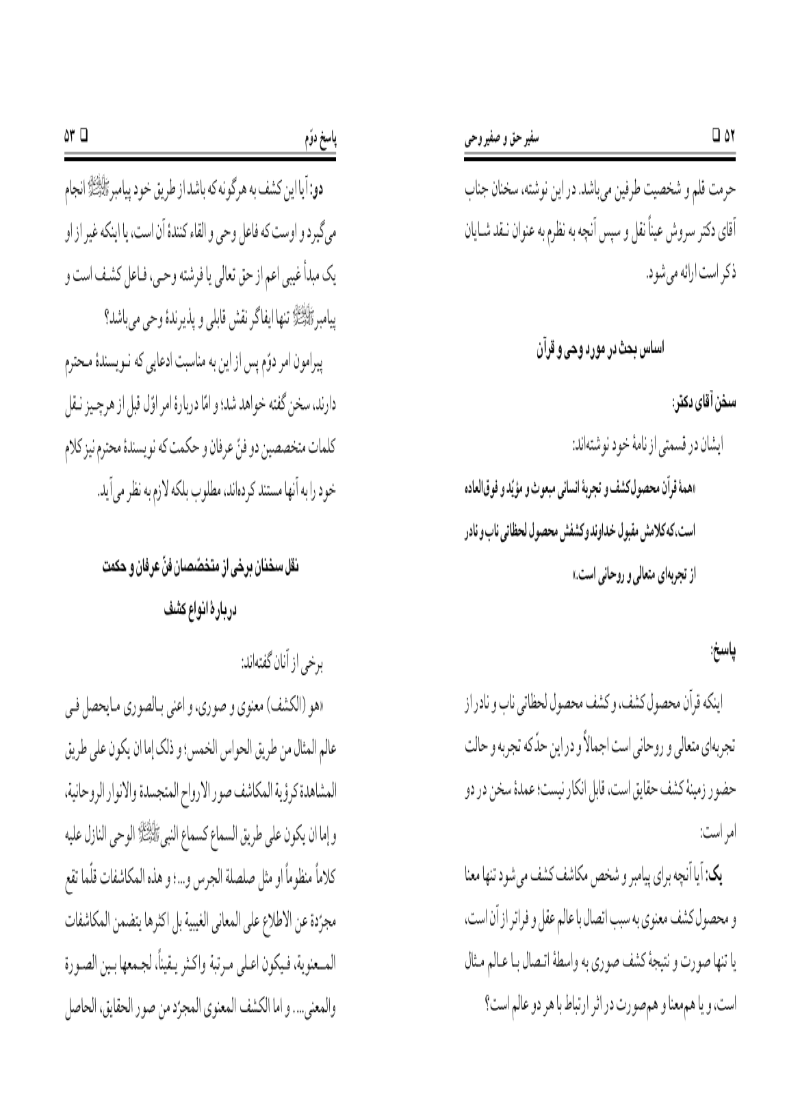 ۵۲ ❑ سفیر حق و صفیر وحی
حرمت قلم و شخصیت طرفین می‌باشد. در این نوشته، سخنان جناب
آقای دکتر سروش عیناً نقل و سپس آنچه به نظرم به عنوان نقد شایان
ذکر است ارائه می‌شود.
اساس بحث در مورد وحی و قرآن
سخن آقای دکتر:
ایشان در قسمتی از نامهٔ خود نوشته‌اند:
«همهٔ قرآن محصول کشف و تجربهٔ انسانی مبعوث و مؤیّد و فوق‌العاده
است، که کلامش مقبول خداوند و کشفش محصول لحظاتی ناب و نادر
از تجربه‌ای متعالی و روحانی است.»
پاسخ:
اینکه قرآن محصول کشف، و کشف محصول لحظاتی ناب و نادر از
تجربه‌ای متعالی و روحانی است اجمالاً و در این حدّ که تجربه و حالت
حضور زمینهٔ کشف حقایق است، قابل انکار نیست؛ عمدهٔ سخن در دو
امر است:
یک: آیا آنچه برای پیامبر و شخص مکاشف کشف می‌شود تنها معنا
و محصول کشف معنوی به سبب اتصال با عالم عقل و فراتر از آن است،
یا تنها صورت و نتیجهٔ کشف صوری به واسطهٔ اتصال با عالم مثال
است، و یا هم‌معنا و هم‌صورت در اثر ارتباط با هر دو عالم است؟
پاسخ دوّم ❑ ۵۳
دو: آیا این کشف به هرگونه که باشد از طریق خود پیامبرﷺ انجام
می‌گیرد و اوست که فاعل وحی و القاء کنندهٔ آن است، یا اینکه غیر از او
یک مبدأ غیبی اعم از حق تعالی یا فرشته وحی، فاعل کشف است و
پیامبرﷺ تنها ایفاگر نقش قابلی و پذیرندهٔ وحی می‌باشد؟
پیرامون امر دوّم پس از این به مناسبت ادعایی که نویسندهٔ محترم
دارند، سخن گفته خواهد شد؛ و امّا دربارهٔ امر اوّل قبل از هرچیز نقل
کلمات متخصصین دو فنّ عرفان و حکمت که نویسندهٔ محترم نیز کلام
خود را به آنها مستند کرده‌اند، مطلوب بلکه لازم به نظر می‌آید.
نقل سخنان برخی از متخصّصان فنّ عرفان و حکمت
دربارهٔ انواع کشف
برخی از آنان گفته‌اند:
«هو (الکشف) معنوی و صوری، و اعنی بالصوری مایحصل فی
عالم المثال من طریق الحواس الخمس؛ و ذلک إما ان یکون علی طریق
المشاهدة کرؤیة المکاشف صور الارواح المتجسدة والانوار الروحانیة،
و إما ان یکون علی طریق السماع کسماع النبیﷺ الوحی النازل علیه
کلاماً منظوماً او مثل صلصلة الجرس و...؛ و هذه المکاشفات قلّما تقع
مجرّدة عن الاطلاع علی المعانی الغیبیة بل اکثرها یتضمن المکاشفات
المعنویة، فیکون اعلی مرتبة واکثر یقیناً، لجمعها بین الصورة
والمعنی.... و اما الکشف المعنوی المجرّد من صور الحقایق، الحاصل